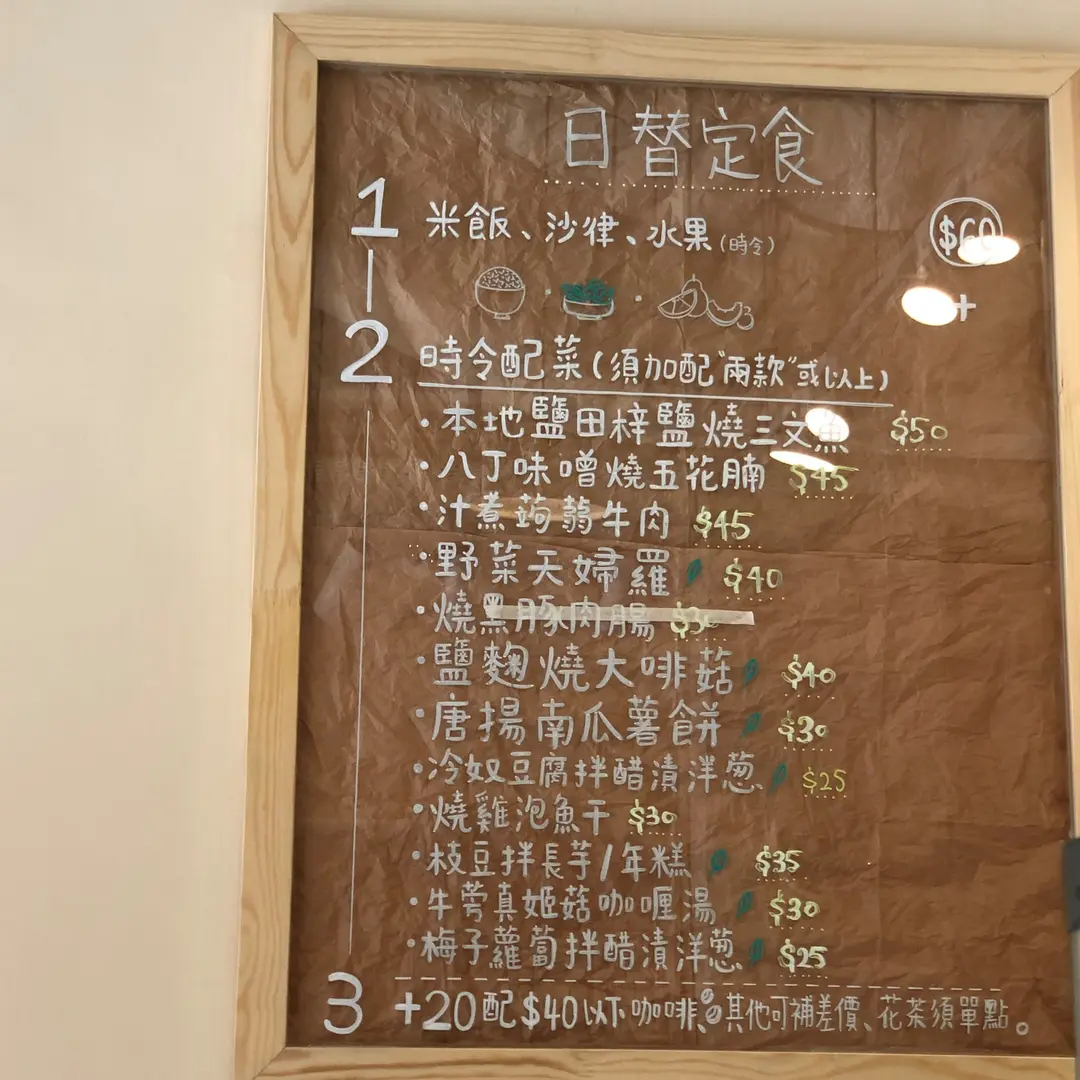 日替定食
1 米飯、沙律、水果(時令) $60
+
2 時令配菜(須加配"兩款"或以上)
·本地鹽田梓鹽燒三文魚 $50
·八丁味噌燒五花腩 $45
·汁煮蒟蒻牛肉 $45
·野菜天婦羅 $40
·燒黑豚肉腸
·鹽麴燒大啡菇 $40
·唐揚南瓜薯餅 $30
·冷奴豆腐拌醋漬洋葱 $25
·燒雞泡魚干 $30
·枝豆拌長芋/年糕 $35
·牛蒡真姬菇咖喱湯 $30
·梅子蘿蔔拌醋漬洋葱 $25
3 +20配$40以下咖啡 其他可補差價、花茶須單點。